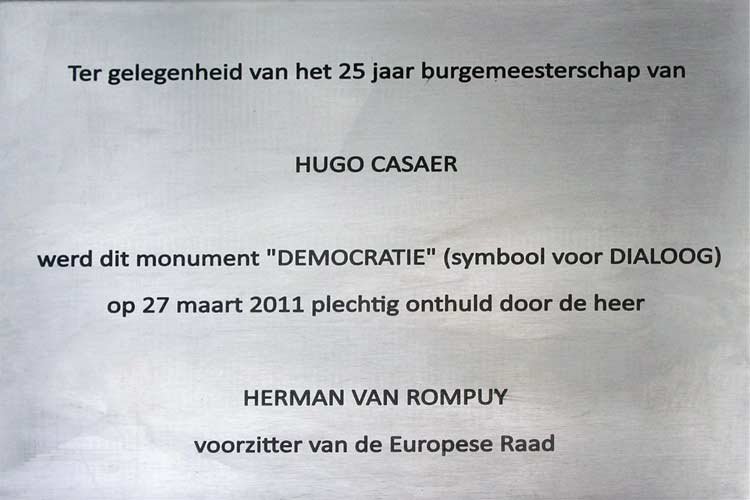 Ter gelegenheid van het 25 jaar burgemeesterschap van
HUGO CASAER
werd dit monument "DEMOCRATIE" (symbool voor DIALOOG)
op 27 maart 2011 plechtig onthuld door de heer
HERMAN VAN ROMPUY
voorzitter van de Europese Raad